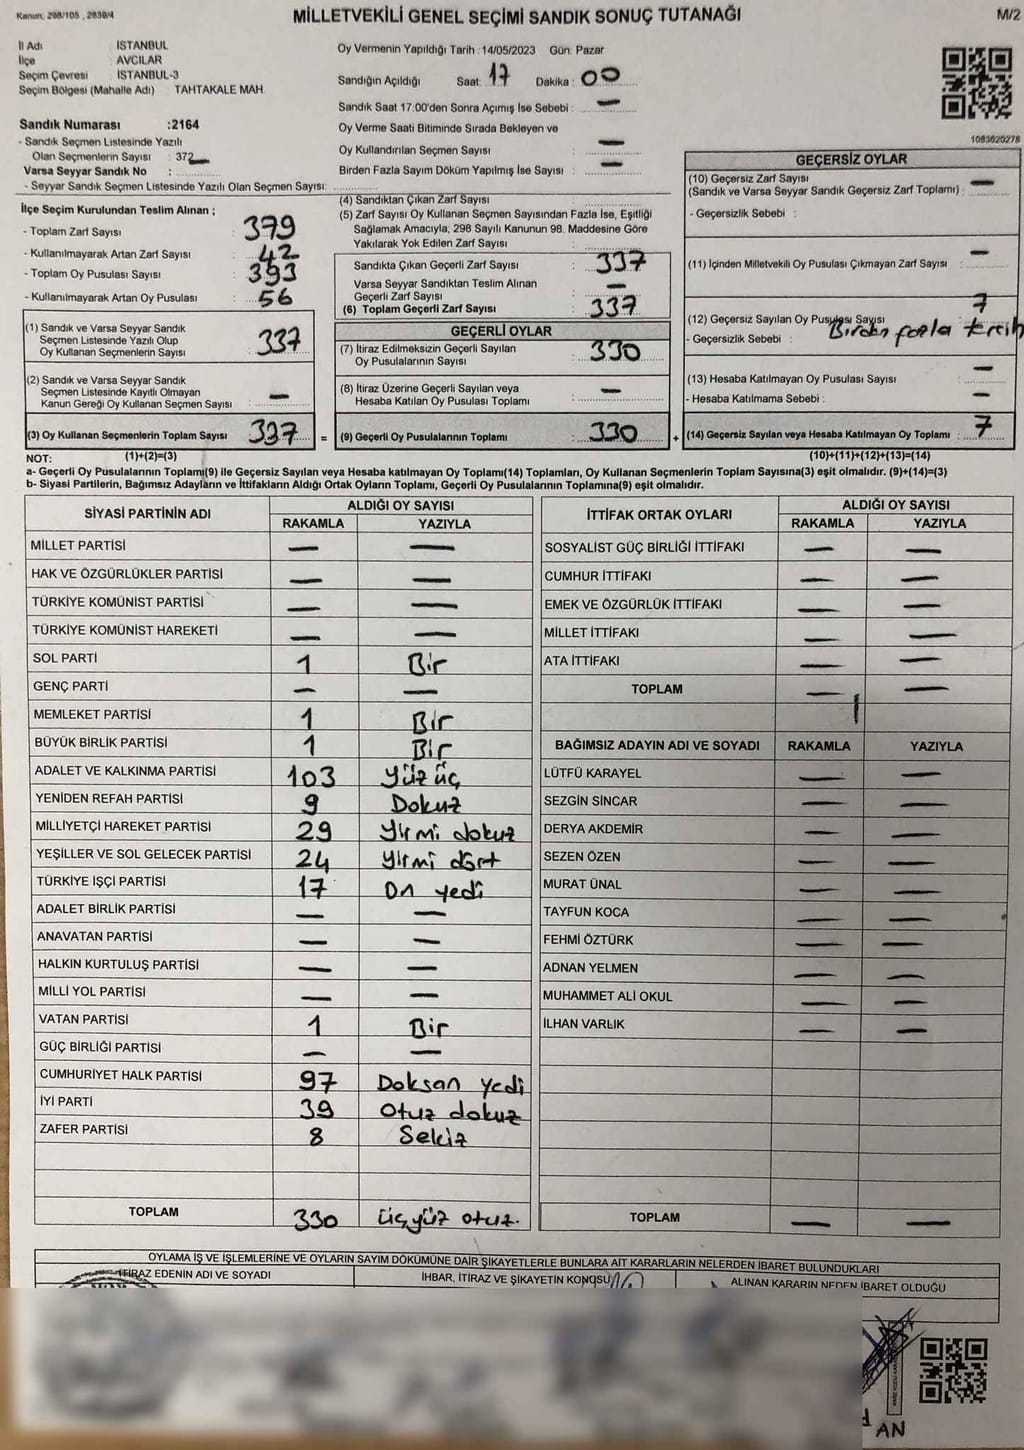 Kanun, 298/105 , 2839/4
MİLLETVEKİLİ GENEL SEÇİMİ SANDIK SONUÇ TUTANAĞI
M/2
İl Adı : İSTANBUL
İlçe : AVCILAR
Seçim Çevresi : İSTANBUL-3
Seçim Bölgesi (Mahalle Adı) : TAHTAKALE MAH.
Sandık Numarası :2164
- Sandık Seçmen Listesinde Yazılı
Olan Seçmenlerin Sayısı : 372
Varsa Seyyar Sandık No :
- Seyyar Sandık Seçmen Listesinde Yazılı Olan Seçmen Sayısı:
Oy Vermenin Yapıldığı Tarih :14/05/2023 Gün: Pazar
Sandığın Açıldığı Saat: 17 Dakika : 00
Sandık Saat 17:00'den Sonra Açımış İse Sebebi : —
Oy Verme Saati Bitiminde Sırada Bekleyen ve
Oy Kullandırılan Seçmen Sayısı : —
Birden Fazla Sayım Döküm Yapılmış İse Sayısı : —
1083620278
İlçe Seçim Kurulundan Teslim Alınan ;
- Toplam Zarf Sayısı : 379
- Kullanılmayarak Artan Zarf Sayısı : 42
- Toplam Oy Pusulası Sayısı : 393
- Kullanılmayarak Artan Oy Pusulası : 56
(1) Sandık ve Varsa Seyyar Sandık
Seçmen Listesinde Yazılı Olup
Oy Kullanan Seçmenlerin Sayısı : 337
(2) Sandık ve Varsa Seyyar Sandık
Seçmen Listesinde Kayıtlı Olmayan
Kanun Gereği Oy Kullanan Seçmen Sayısı : —
(3) Oy Kullanan Seçmenlerin Toplam Sayısı : 337 =
(4) Sandıktan Çıkan Zarf Sayısı :
(5) Zarf Sayısı Oy Kullanan Seçmen Sayısından Fazla İse, Eşitliği
Sağlamak Amacıyla; 298 Sayılı Kanunun 98. Maddesine Göre
Yakılarak Yok Edilen Zarf Sayısı :
Sandıkta Çıkan Geçerli Zarf Sayısı : 337
Varsa Seyyar Sandıktan Teslim Alınan
Geçerli Zarf Sayısı : —
(6) Toplam Geçerli Zarf Sayısı : 337
GEÇERLİ OYLAR
(7) İtiraz Edilmeksizin Geçerli Sayılan
Oy Pusulalarının Sayısı : 330
(8) İtiraz Üzerine Geçerli Sayılan veya
Hesaba Katılan Oy Pusulası Toplamı : —
(9) Geçerli Oy Pusulalarının Toplamı : 330 +
GEÇERSİZ OYLAR
(10) Geçersiz Zarf Sayısı
(Sandık ve Varsa Seyyar Sandık Geçersiz Zarf Toplamı) : —
- Geçersizlik Sebebi :
(11) İçinden Milletvekili Oy Pusulası Çıkmayan Zarf Sayısı : —
(12) Geçersiz Sayılan Oy Pusulası Sayısı : 7
- Geçersizlik Sebebi : Birden fazla tercih
(13) Hesaba Katılmayan Oy Pusulası Sayısı : —
- Hesaba Katılmama Sebebi : —
(14) Geçersiz Sayılan veya Hesaba Katılmayan Oy Toplamı : 7
NOT: (1)+(2)=(3) (10)+(11)+(12)+(13)=(14)
a- Geçerli Oy Pusulalarının Toplamı(9) ile Geçersiz Sayılan veya Hesaba katılmayan Oy Toplamı(14) Toplamları, Oy Kullanan Seçmenlerin Toplam Sayısına(3) eşit olmalıdır. (9)+(14)=(3)
b- Siyasi Partilerin, Bağımsız Adayların ve İttifakların Aldığı Ortak Oyların Toplamı, Geçerli Oy Pusulalarının Toplamına(9) eşit olmalıdır.
SİYASİ PARTİNİN ADI ALDIĞI OY SAYISI
RAKAMLA YAZIYLA
MİLLET PARTİSİ — —
HAK VE ÖZGÜRLÜKLER PARTİSİ — —
TÜRKİYE KOMÜNİST PARTİSİ — —
TÜRKİYE KOMÜNİST HAREKETİ — —
SOL PARTİ 1 Bir
GENÇ PARTİ — —
MEMLEKET PARTİSİ 1 Bir
BÜYÜK BİRLİK PARTİSİ 1 Bir
ADALET VE KALKINMA PARTİSİ 103 Yüz üç
YENİDEN REFAH PARTİSİ 9 Dokuz
MİLLİYETÇİ HAREKET PARTİSİ 29 Yirmi dokuz
YEŞİLLER VE SOL GELECEK PARTİSİ 24 Yirmi dört
TÜRKİYE İŞÇİ PARTİSİ 17 On yedi
ADALET BİRLİK PARTİSİ — —
ANAVATAN PARTİSİ — —
HALKIN KURTULUŞ PARTİSİ — —
MİLLİ YOL PARTİSİ — —
VATAN PARTİSİ 1 Bir
GÜÇ BİRLİĞİ PARTİSİ — —
CUMHURİYET HALK PARTİSİ 97 Doksan yedi
İYİ PARTİ 39 Otuz dokuz
ZAFER PARTİSİ 8 Sekiz
TOPLAM 330 üçyüz otuz.
İTTİFAK ORTAK OYLARI ALDIĞI OY SAYISI
RAKAMLA YAZIYLA
SOSYALİST GÜÇ BİRLİĞİ İTTİFAKI — —
CUMHUR İTTİFAKI — —
EMEK VE ÖZGÜRLÜK İTTİFAKI — —
MİLLET İTTİFAKI — —
ATA İTTİFAKI — —
TOPLAM — —
BAĞIMSIZ ADAYIN ADI VE SOYADI RAKAMLA YAZIYLA
LÜTFÜ KARAYEL — —
SEZGİN SİNCAR — —
DERYA AKDEMİR — —
SEZEN ÖZEN — —
MURAT ÜNAL — —
TAYFUN KOCA — —
FEHMİ ÖZTÜRK — —
ADNAN YELMEN — —
MUHAMMET ALİ OKUL — —
İLHAN VARLIK — —
TOPLAM — —
OYLAMA İŞ VE İŞLEMLERİNE VE OYLARIN SAYIM DÖKÜMÜNE DAİR ŞİKAYETLERLE BUNLARA AİT KARARLARIN NELERDEN İBARET BULUNDUKLARI
İTİRAZ EDENİN ADI VE SOYADI
İHBAR, İTİRAZ VE ŞİKAYETİN KONUSU
ALINAN KARARIN NEDEN İBARET OLDUĞU
AN